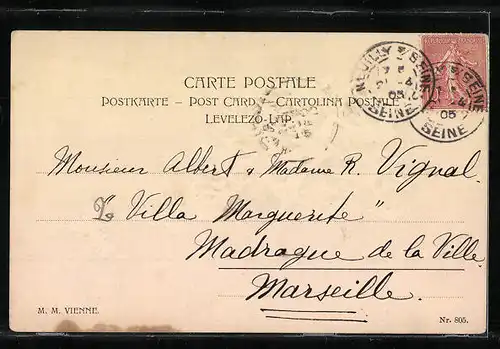 CARTE POSTALE
POSTKARTE – POST CARD – CARTOLINA POSTALE
LEVELEZŐ-LAP.
NEUILLY S/SEINE
05
SEINE
SEINE
05
SEINE
Monsieur Albert & Madame R. Vignal
"Villa Marguerite"
Madrague de la Ville
Marseille.
M. M. VIENNE.
Nr. 805.